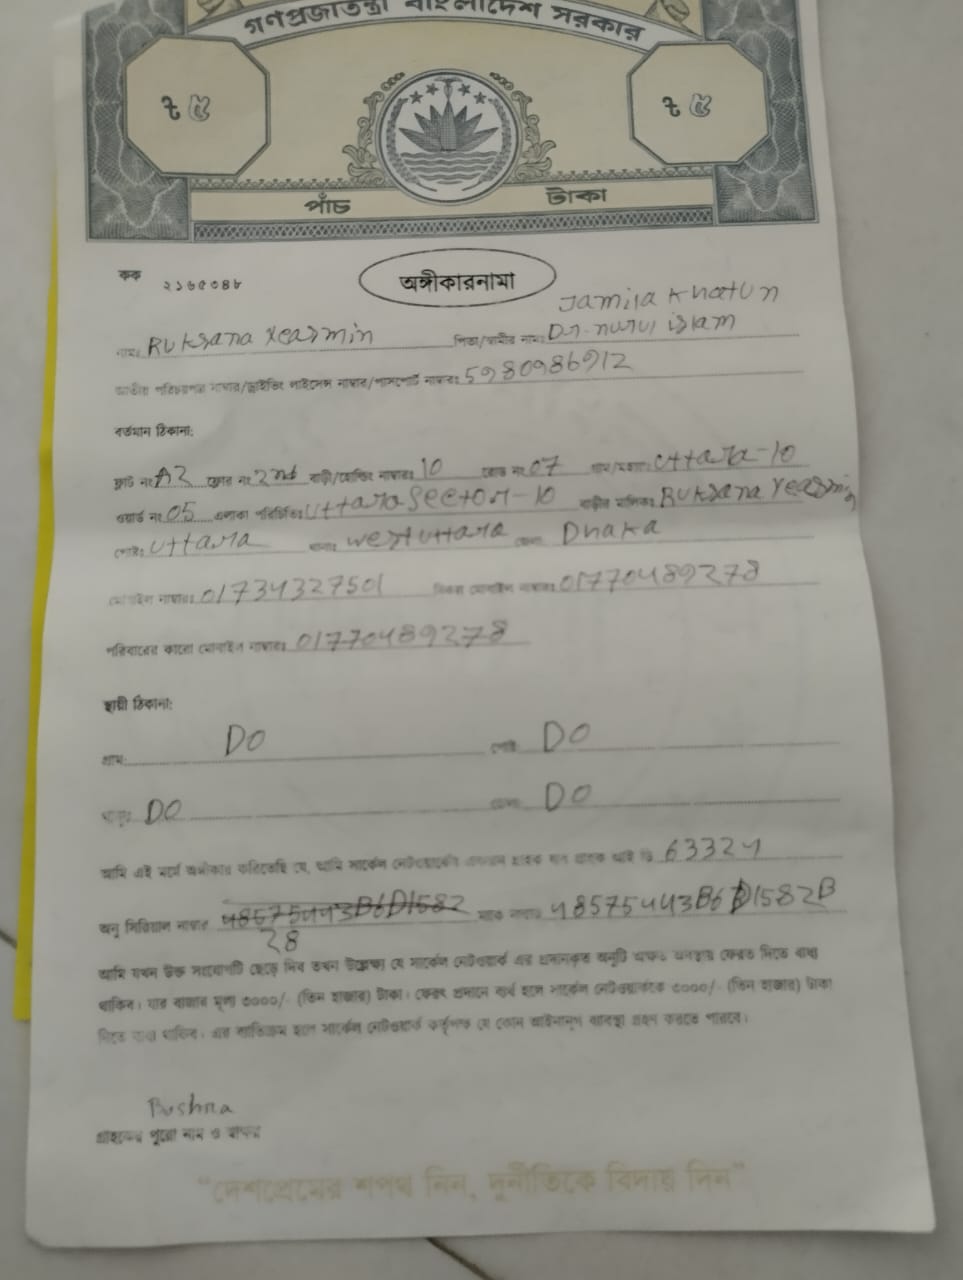 গণপ্রজাতন্ত্রী বাংলাদেশ সরকার
৳ ৫ ৳ ৫
পাঁচ টাকা
কক ২১৬৫৩৪৮
অঙ্গীকারনামা
Jamila Khatun
নামঃ Ruksana Yeasmin পিতা/স্বামীর নামঃ Dr-nurul islam
জাতীয় পরিচয়পত্র নাম্বার/ড্রাইভিং লাইসেন্স নাম্বার/পাসপোর্ট নাম্বারঃ 5980986912
বর্তমান ঠিকানা:
ফ্লাট নংঃ A2 ফ্লোর নংঃ 2nd বাড়ী/হোল্ডিং নাম্বারঃ 10 রোড নংঃ 07 গ্রাম/মহল্লাঃ Uttara-10
ওয়ার্ড নংঃ 05 এলাকা পরিচিতিঃ Uttara Sector-10 বাড়ীর মালিকঃ Ruksana Yeasmin
পোষ্টঃ Uttara থানাঃ west uttara জেলাঃ Dhaka
মোবাইল নাম্বারঃ 01734327501 বিকল্প মোবাইল নাম্বারঃ 01770489278
পরিবারের কারো মোবাইল নাম্বারঃ 01770489278
স্থায়ী ঠিকানা:
গ্রাম: DO পোষ্ট: DO
থানাঃ DO জেলা: DO
আমি এই মর্মে অঙ্গীকার করিতেছি যে, আমি সার্কেল নেটওয়ার্কের একজন গ্রাহক যার গ্রাহক আই ডি 63324
অনু সিরিয়াল নাম্বার 48575443B6D1582 ম্যাক নাম্বারঃ 48575443B6D1582B
28
আমি যখন উক্ত সংযোগটি ছেড়ে দিব তখন উল্লেখ্য যে সার্কেল নেটওয়ার্ক এর প্রদানকৃত অনুটি অক্ষত অবস্থায় ফেরত দিতে বাধ্য
থাকিব। যার বাজার মূল্য ৩০০০/- (তিন হাজার) টাকা। ফেরৎ প্রদানে ব্যর্থ হলে সার্কেল নেটওয়ার্ককে ৩০০০/- (তিন হাজার) টাকা
দিতে বাধ্য থাকিব। এর ব্যতিক্রম হলে সার্কেল নেটওয়ার্ক কর্তৃপক্ষ যে কোন আইনানুগ ব্যবস্থা গ্রহণ করতে পারবে।
Bushra
গ্রাহকের পুরো নাম ও স্বাক্ষর
“দেশপ্রেমের শপথ নিন, দুর্নীতিকে বিদায় দিন”